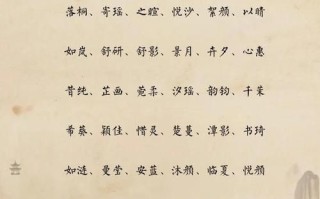 落桐、寄瑶、之暄、悦汐、絮颜、以晴
如岚、舒研、舒影、景月、卉夕、心惠
昔纯、芷画、菀柔、汐瑶、韵钧、千茉
希葵、颖佳、惜灵、楚蔓、潭影、书琦
如涟、曼莹、安蓝、沐颜、临夏、悦颜